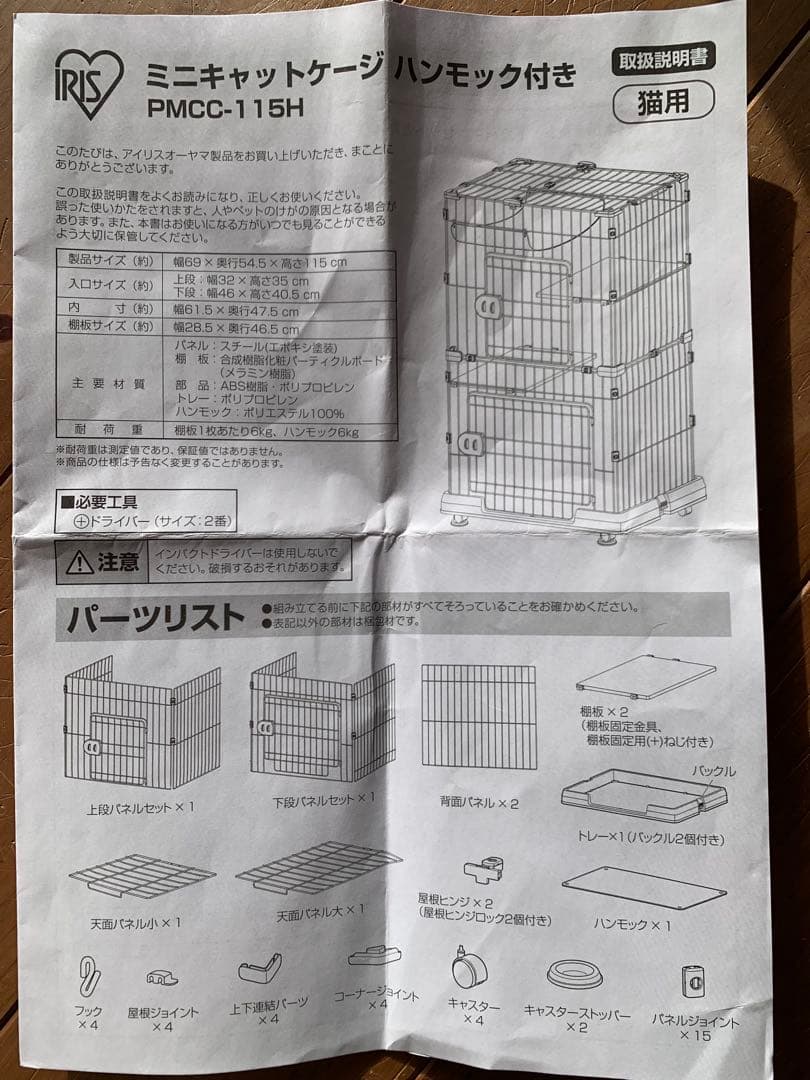 IRIS
ミニキャットケージ ハンモック付き
PMCC-115H
取扱説明書
猫用
このたびは、アイリスオーヤマ製品をお買い上げいただき、まことに
ありがとうございます。
この取扱説明書をよくお読みになり、正しくお使いください。
誤った使いかたをされますと、人やペットのけがの原因となる場合が
あります。また、本書はお使いになる方がいつでも見ることができる
よう大切に保管してください。
製品サイズ（約） 幅69×奥行54.5×高さ115 cm
入口サイズ（約） 上段：幅32×高さ35 cm
下段：幅46×高さ40.5 cm
内寸（約） 幅61.5×奥行47.5 cm
棚板サイズ（約） 幅28.5×奥行46.5 cm
主要材質 パネル：スチール(エポキシ塗装)
棚板：合成樹脂化粧パーティクルボード
（メラミン樹脂）
部品：ABS樹脂・ポリプロピレン
トレー：ポリプロピレン
ハンモック：ポリエステル100%
耐荷重 棚板1枚あたり6kg、ハンモック6kg
※耐荷重は測定値であり、保証値ではありません。
※商品の仕様は予告なく変更することがあります。
■必要工具
⊕ドライバー（サイズ：2番）
⚠注意 インパクトドライバーは使用しないで
ください。破損するおそれがあります。
パーツリスト
●組み立てる前に下記の部材がすべてそろっていることをお確かめください。
●表記以外の部材は梱包材です。
上段パネルセット×1
下段パネルセット×1
背面パネル×2
棚板×2
（棚板固定金具、
棚板固定用(+)ねじ付き）
バックル
トレー×1（バックル2個付き）
天面パネル小×1
天面パネル大×1
屋根ヒンジ×2
（屋根ヒンジロック2個付き）
ハンモック×1
フック
×4
屋根ジョイント
×4
上下連結パーツ
×4
コーナージョイント
×4
キャスター
×4
キャスターストッパー
×2
パネルジョイント
×15